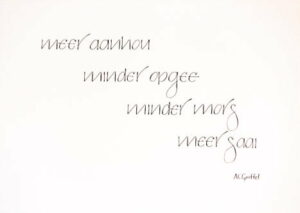 meer aanhou
minder opgee
minder mors
meer saai